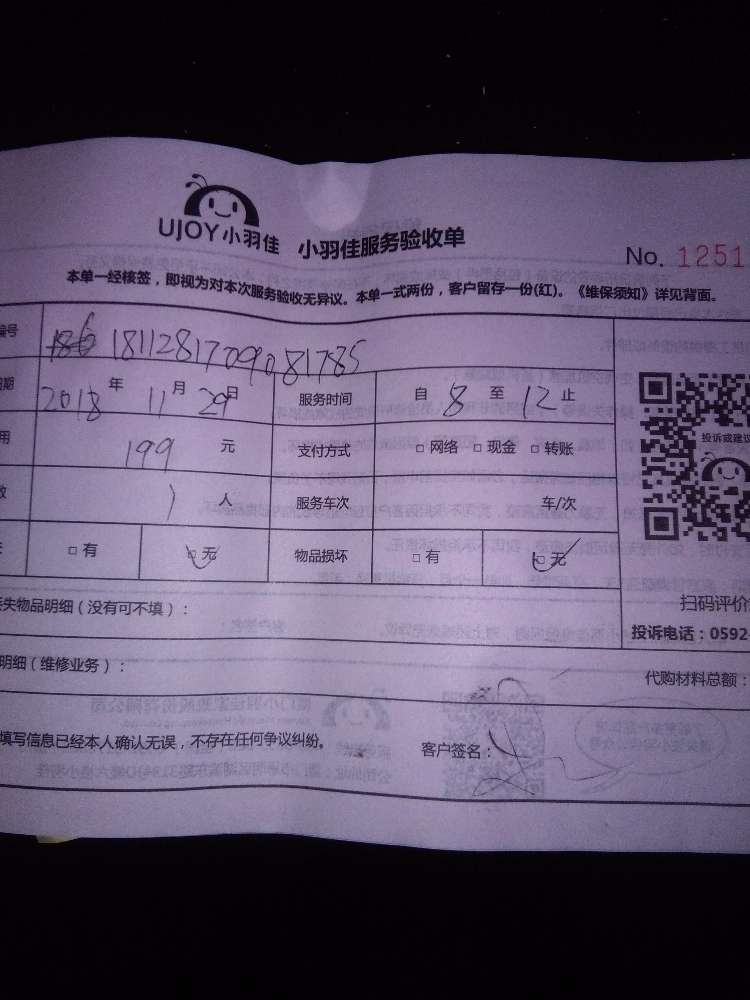 UJOY小羽佳 小羽佳服务验收单
No. 1251
本单一经核签，即视为对本次服务验收无异议。本单一式两份，客户留存一份(红)。《维保须知》详见背面。
编号 1811281709081785
日期 2018 年 11 月 29 日 服务时间 自 8 至 12 止
用 199 元 支付方式 □ 网络 □ 现金 □ 转账
数 1 人 服务车次 车/次
□ 有 □ 无 物品损坏 □ 有 □ 无
投诉或建议
失物品明细（没有可不填）：
扫码评价
投诉电话：0592-
明细（维修业务）：
代购材料总额：
填写信息已经本人确认无误，不存在任何争议纠纷。
客户签名：